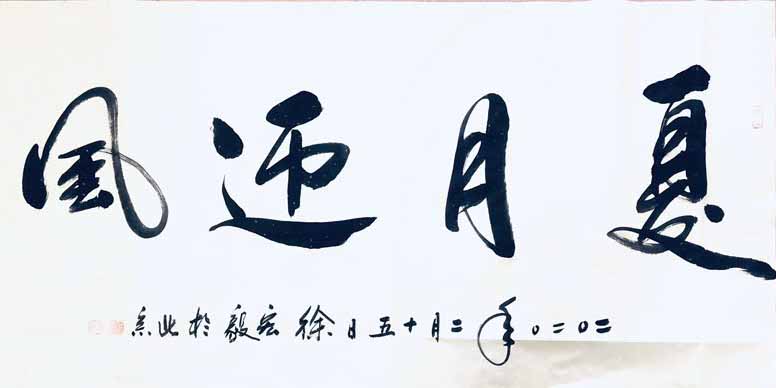 夏月迎風
二〇二〇年二月十五日徐宏毅於北京